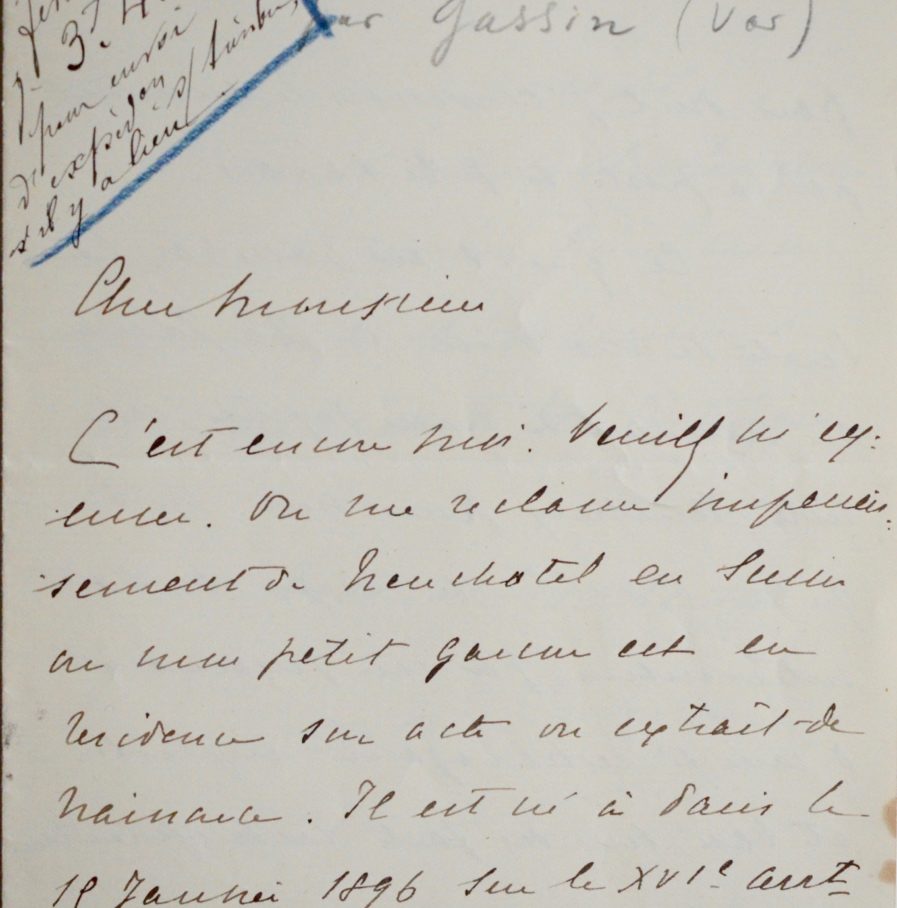 3.4
pour envoi
d'expédon s/ timbre,
s'il y a lieu
par Gassin (Var)
Cher Monsieur
C'est encore moi. Veuillez m'ex-
cuser. On me réclame impérieu-
sement de Neuchatel en Suisse
ou mon petit garcon est en
residence son acte ou extrait de
naissance. Il est né à Paris le
Janvier 1896 sur le XVIe arrt